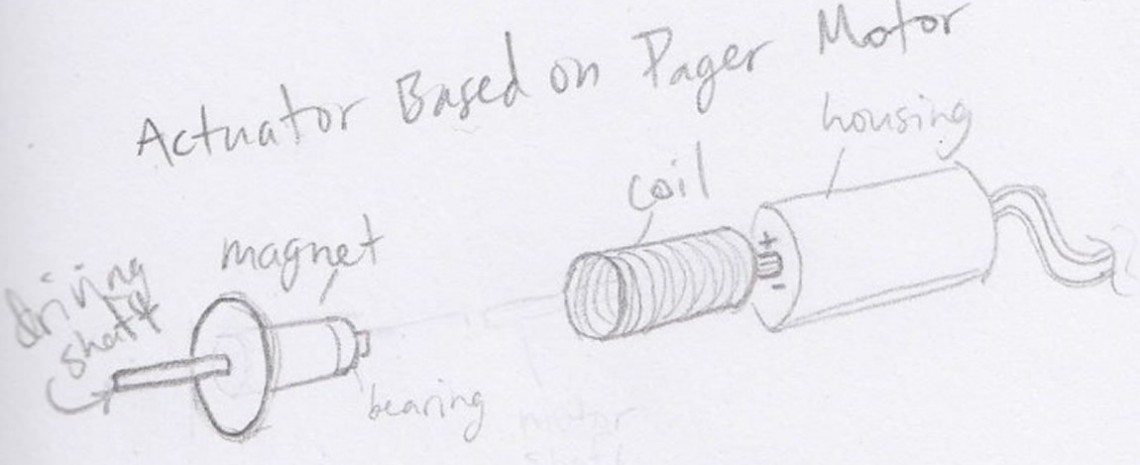 Actuator Based on Pager Motor
housing
coil
magnet
driving
shaft
+
-
bearing
motor
shaft